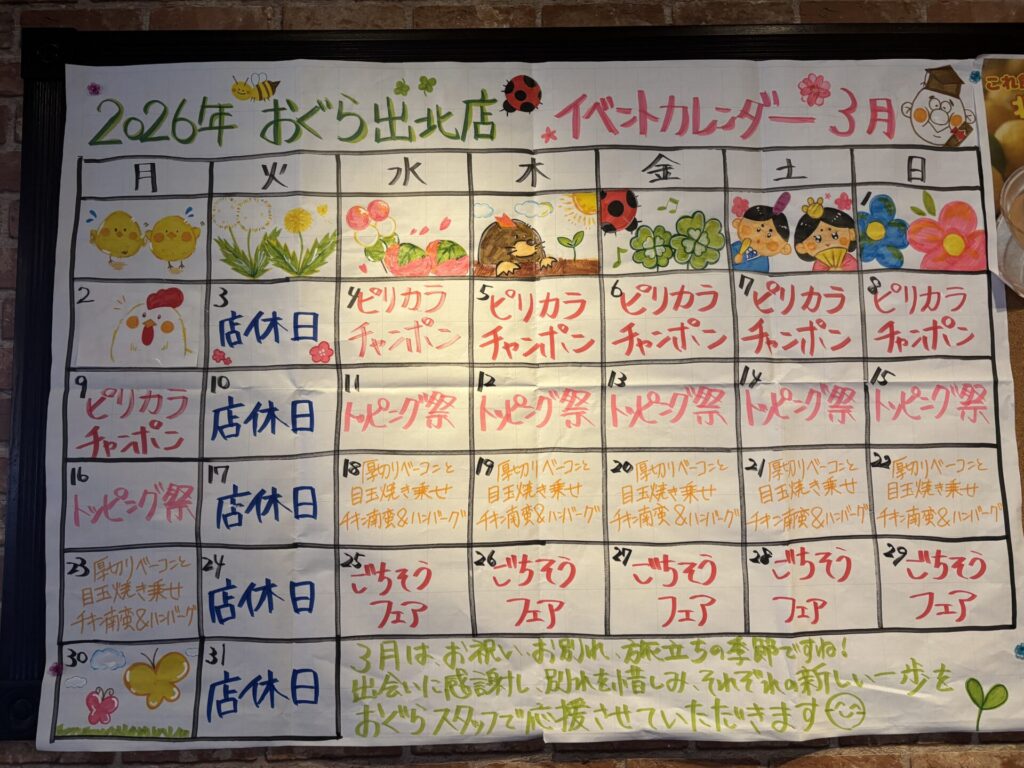 2026年 おぐら出北店 イベントカレンダー 3月
月 火 水 木 金 土 日
1
2
3 店休日
4 ピリカラ
チャンポン
5 ピリカラ
チャンポン
6 ピリカラ
チャンポン
7 ピリカラ
チャンポン
8 ピリカラ
チャンポン
9 ピリカラ
チャンポン
10 店休日
11 トッピング祭
12 トッピング祭
13 トッピング祭
14 トッピング祭
15 トッピング祭
16 トッピング祭
17 店休日
18 厚切りベーコンと
目玉焼き乗せ
チキン南蛮&ハンバーグ
19 厚切りベーコンと
目玉焼き乗せ
チキン南蛮&ハンバーグ
20 厚切りベーコンと
目玉焼き乗せ
チキン南蛮&ハンバーグ
21 厚切りベーコンと
目玉焼き乗せ
チキン南蛮&ハンバーグ
22 厚切りベーコンと
目玉焼き乗せ
チキン南蛮&ハンバーグ
23 厚切りベーコンと
目玉焼き乗せ
チキン南蛮&ハンバーグ
24 店休日
25 ごちそう
フェア
26 ごちそう
フェア
27 ごちそう
フェア
28 ごちそう
フェア
29 ごちそう
フェア
30
31 店休日
3月は、お祝い、お別れ、旅立ちの季節ですね!
出会いに感謝し、別れを惜しみ、それぞれの新しい一歩を
おぐらスタッフで応援させていただきます